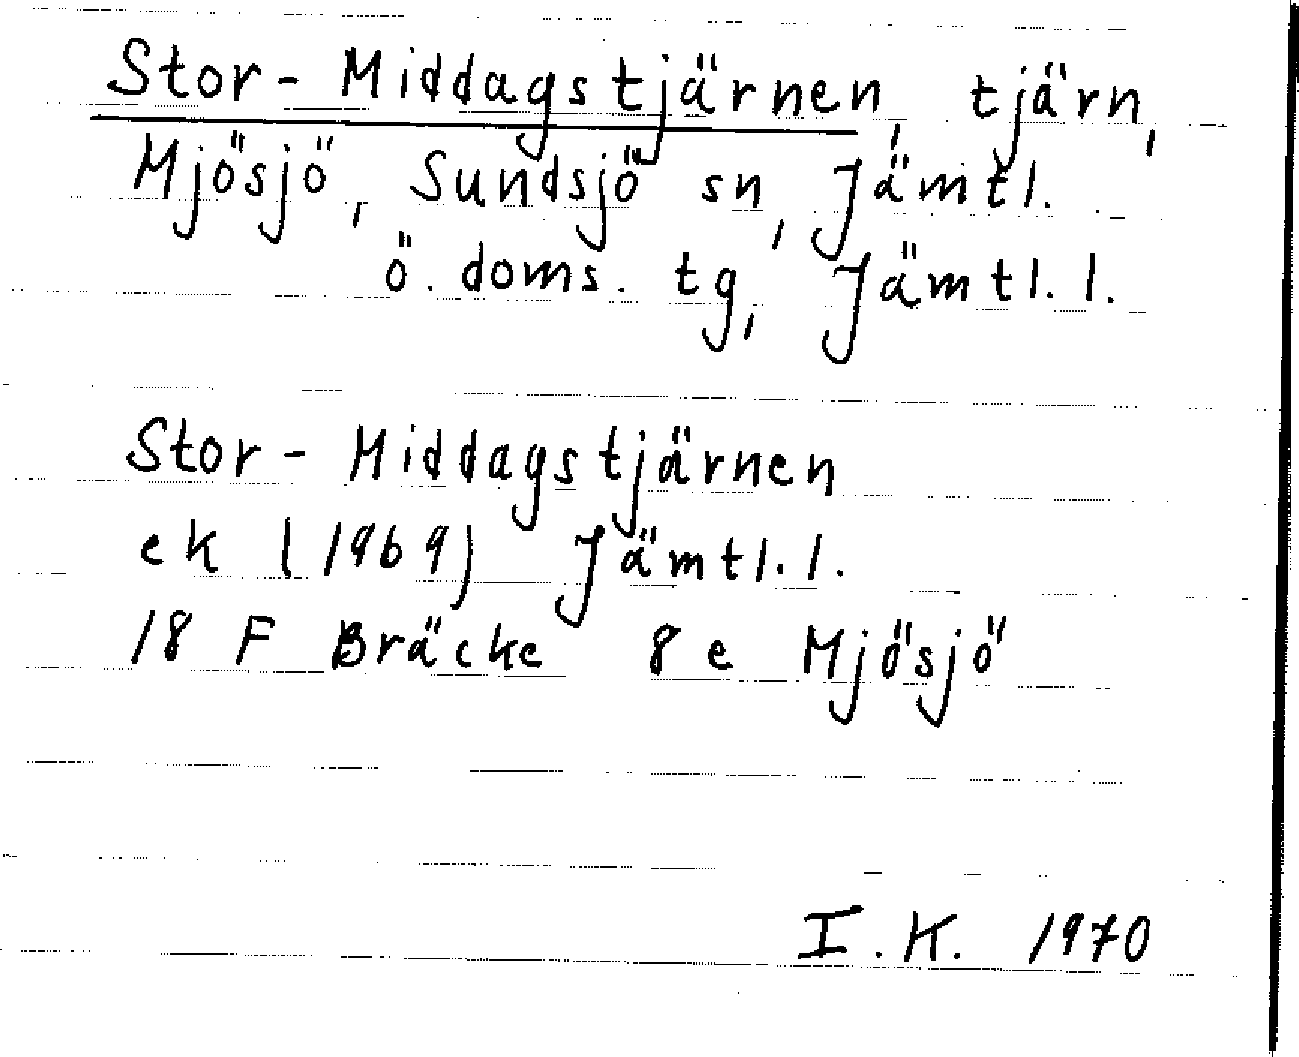 Stor-Middagstjärnen, tjärn,
Mjösjö, Sundsjö sn, Jämtl.
ö. doms. tg, Jämtl. l.
Stor-Middagstjärnen
ek (1969) Jämtl. l.
18 F Bräcke 8 e Mjösjö
I. K. 1970